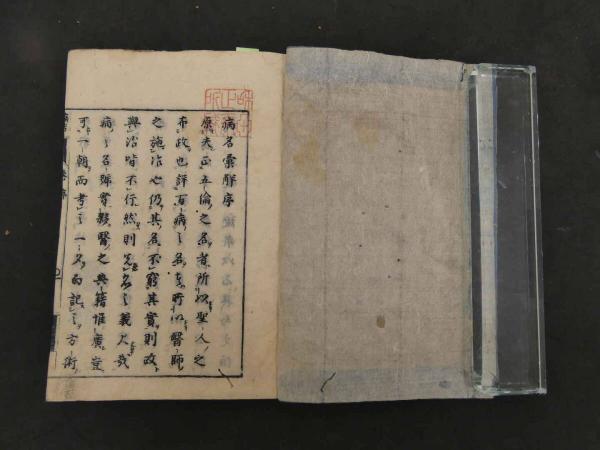 病名彙解序
原夫正五倫之名者所以聖人之
布政也評百病之名者所以醫師
之施治也仍其名不窮其實則政
與治皆不行然則先名之義大哉
病之名號實繁醫之典籍惟廣豈
可一朝而考之一々名而記之方術